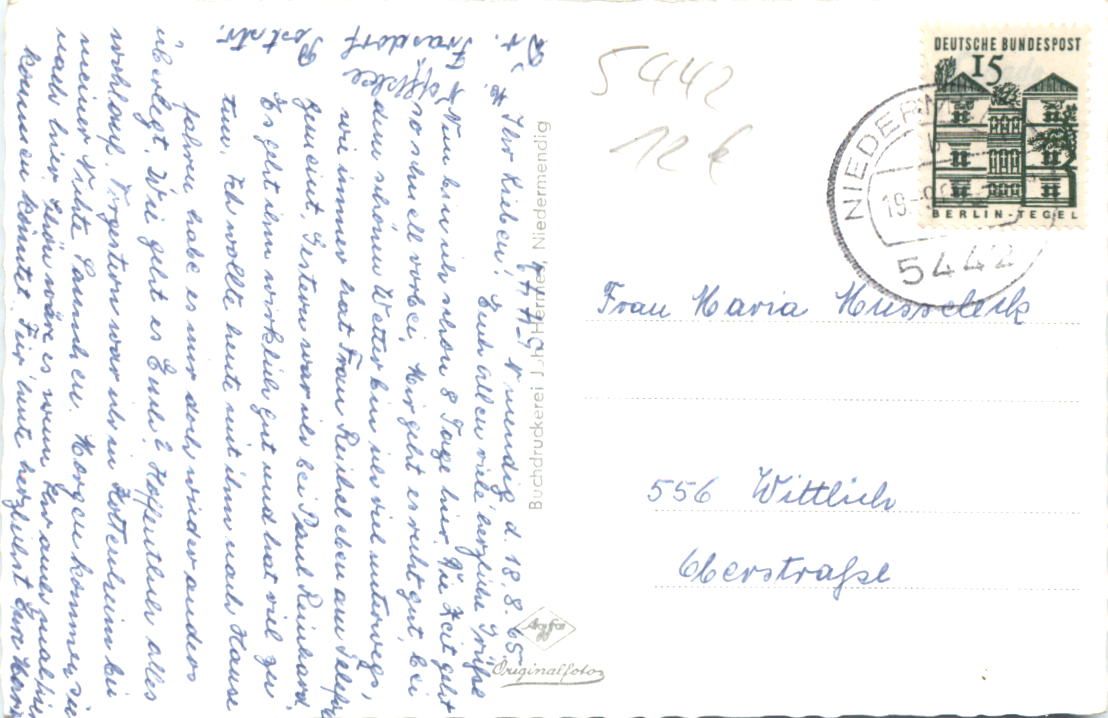 N'mendig, d. 18.8.65
Ihr Lieben! Euch allen viele herzliche Grüße
Nun bin ich schon 8 Tage hier, die Zeit geht
so schnell vorbei. Mir geht es recht gut, bei
dem schönen Wetter bin ich viel unterwegs,
wie immer hat Frau Reichel eben am Telefon
gemeint. Gestern war ich bei Paul Reinhard,
Es geht ihm wirklich gut und hat viel zu
tun. Ich wollte heute mit ihm nach Hause
fahren habe es mir doch wieder anders
überlegt. Wie geht es Euch? Hoffentlich alles
wohlauf. Vorgestern war ich in Kottenheim bei
meiner Nichte Sannchen. Morgen kommen sie
nach hier. Schön wäre es wenn Ihr auch mal hier
kommen könntet. Für heute herzlichst Eure
Frasdorf
Poststr.
Buchdruckerei Joh. Hermes, Niedermendig
Agfa
Originalfoto
5442
12 €
DEUTSCHE BUNDESPOST
15
BERLIN-TEGEL
5442
Frau Maria Musseleck
556 Wittlich
Oberstraße